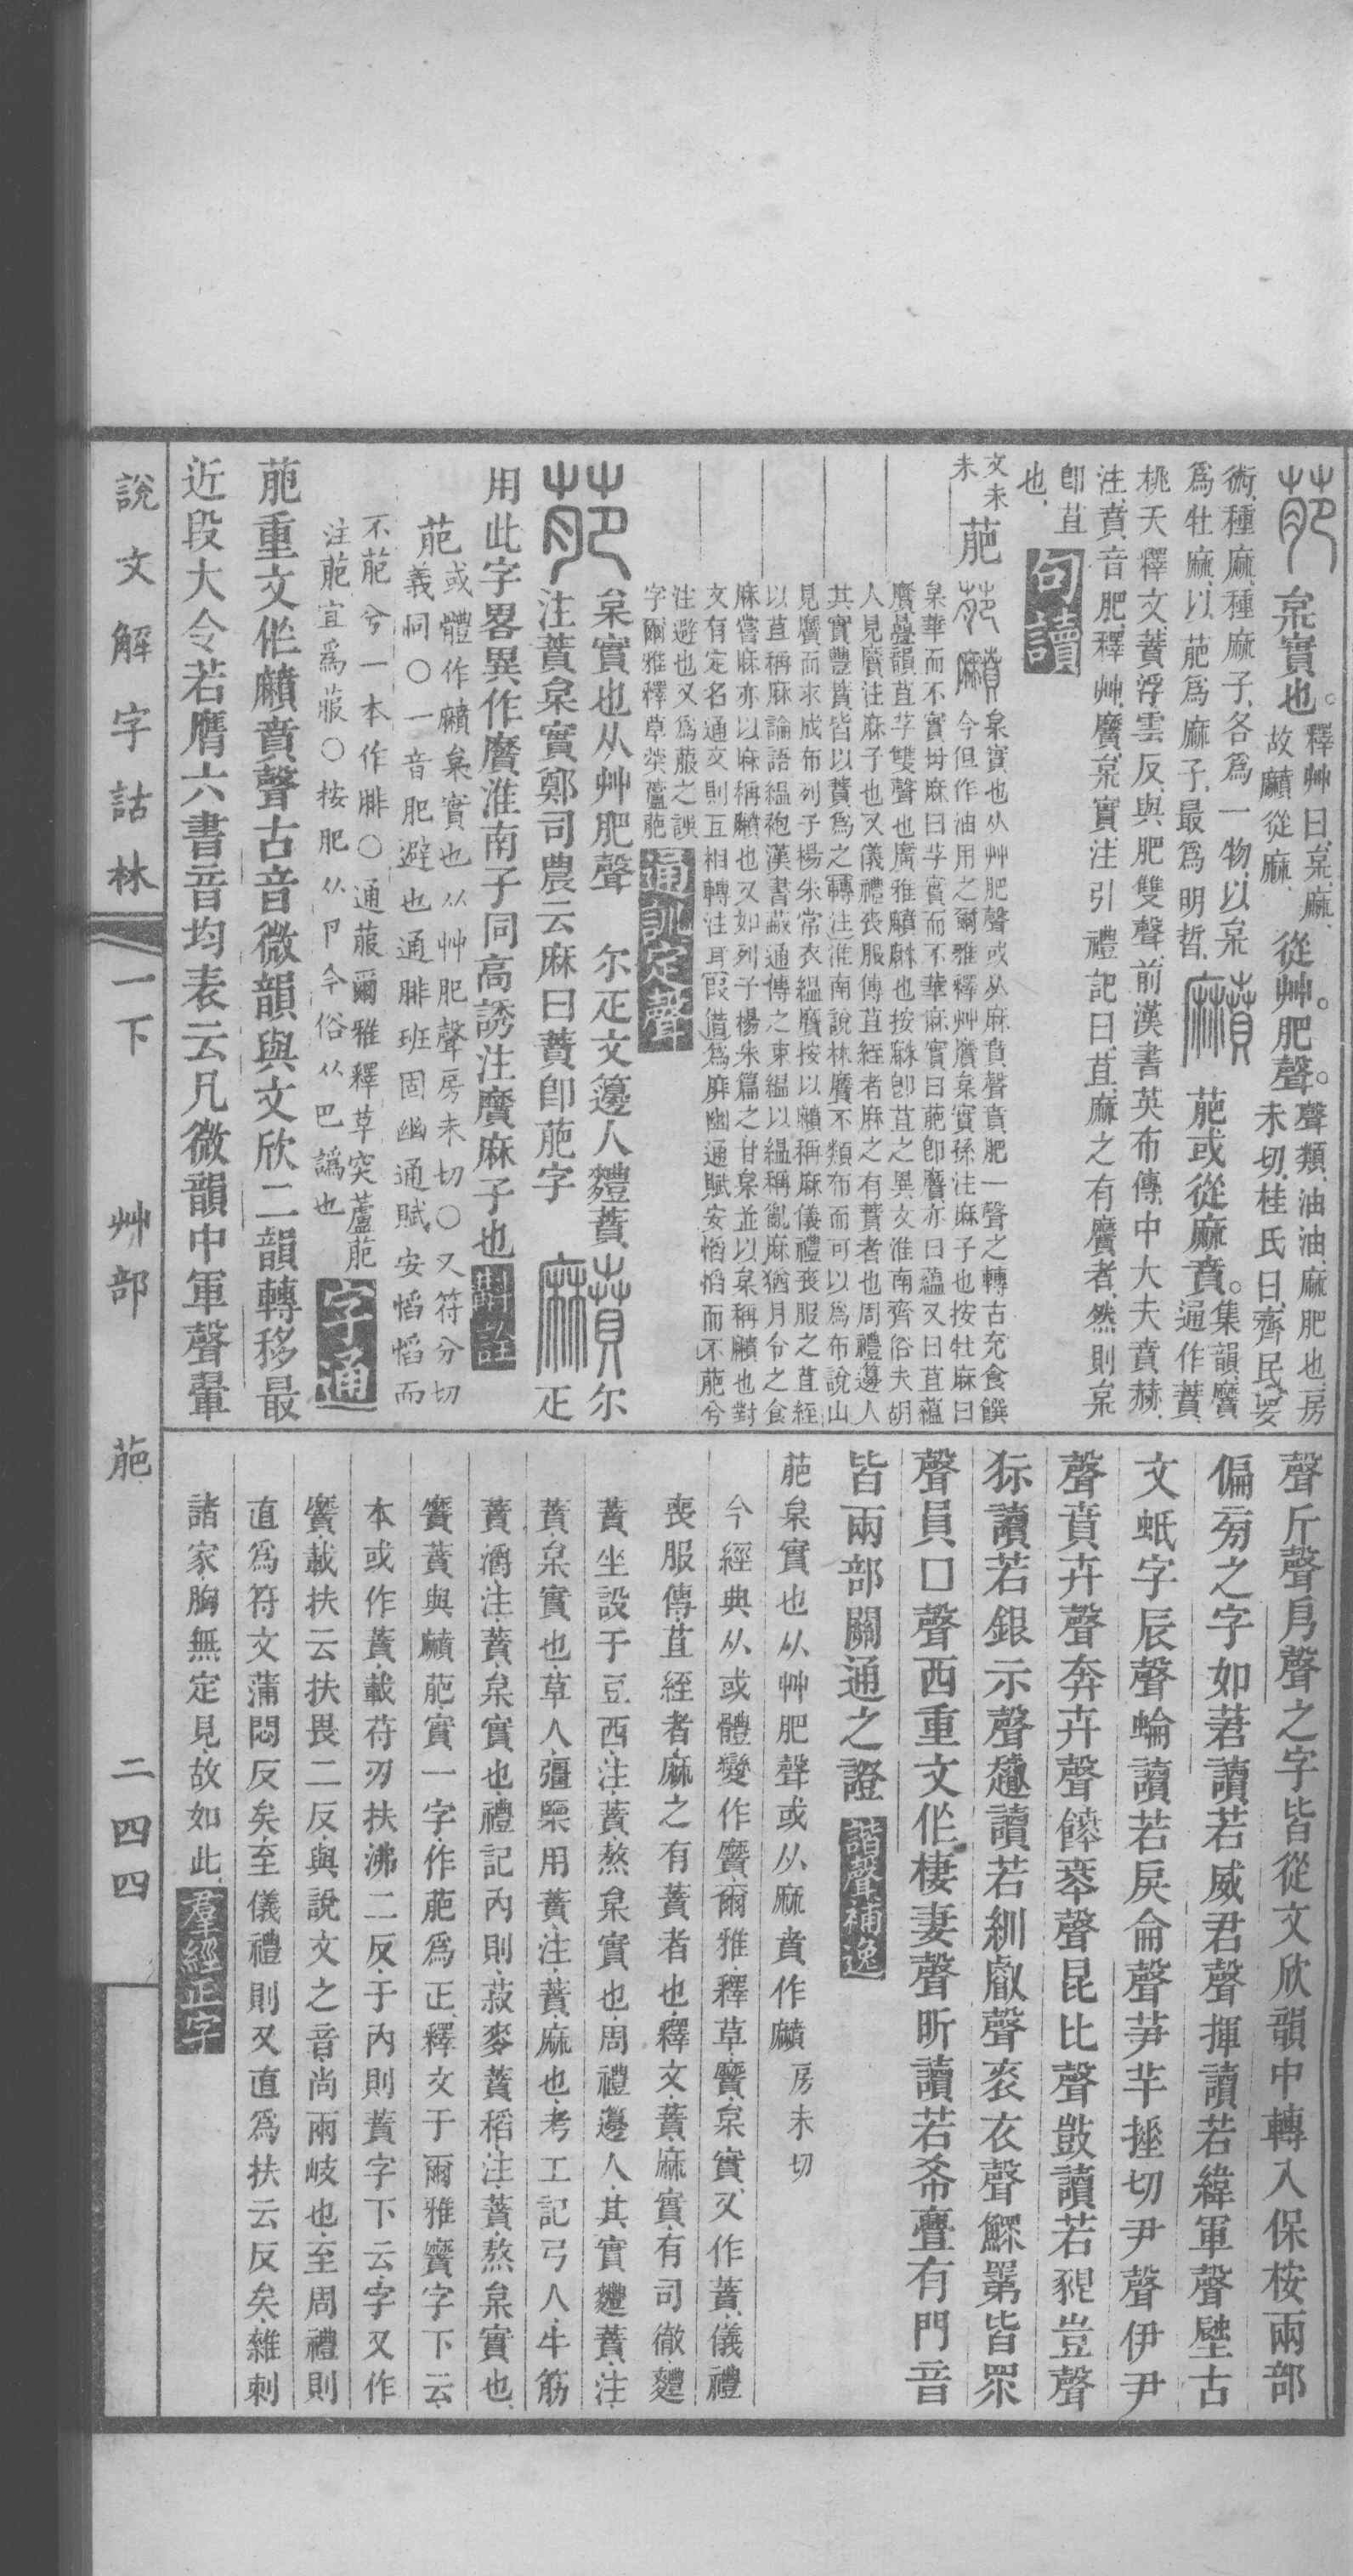 萉 枲實也。釋艸曰、枲、麻、
故黂從麻、從艸。肥聲。聲類、油油、麻肥也、房
未切、桂氏曰、齊民要
術、種麻、種麻子、各為一物、以枲
為牡麻、以萉爲麻子、最爲明晢、 萉或從麻賁。集韻、黂
通作蕡、
桃夭釋文、蕡浮雲反、與肥雙聲、前漢書英布傳、中大夫賁赫、
注、賁音肥、釋艸、黂、枲實、注引禮記曰、苴、麻之有黂者、然則枲
卽苴
也、 句讀
文未
未 萉
枲實也从艸肥聲或从麻賁聲賁肥一聲之轉古充食饌
今但作油用之爾雅釋艸黂枲實孫注麻子也按牡麻曰
枲華而不實母麻曰芓實而不華麻實曰萉卽黂亦曰蘊又曰苴蘊
黂疊韻苴芓雙聲也廣雅
人見黂注麻子也又儀禮喪服傳苴絰者麻之有蕡者也周禮籩人
其實豐蕡皆以蕡爲之轉注淮南說林黂不類布而可以爲布說山
見黂而求成布列子楊朱常衣緼黂按以
以苴稱麻論語緼袍漢書蒯通傳之束緼以緼稱亂麻猶月令之食
麻嘗麻亦以麻稱
文有定名通文則互相轉注耳叚借爲屝幽通賦安慆慆而不萉兮
注避也又爲菔之誤
字爾雅釋草葖蘆萉 通訓定聲
枲實也从艸肥聲 尔疋文籩人豑蕡
注蕡枲實鄭司農云麻曰蕡卽萉字 尔疋
用此字畧異作黂淮南子同高誘注黂麻子也 斠詮
萉 或體作黂枲實也从艸肥聲房未切○又符分切
義同○一音肥避也通腓班固幽通賦安慆慆而
不萉兮一本作腓○通菔爾雅釋草突蘆萉
注萉宜爲菔○按肥从卪今俗从巴譌也 字通
萉重文作黂賁聲古音微韻與文欣二韻轉移最
近段大令若膺六書音均表云凡微韻中軍聲翬
聲斤聲㐆聲之字皆從文欣韻中轉入保桉兩部
偏旁之字如莙讀若威君聲揮讀若緯軍聲壁古
文蚔字辰聲蜦讀若戾侖聲
聲賁卉聲奔卉聲
狋讀若銀示聲趨讀若
聲員口聲西重文作棲妻聲昕讀若希斖有門音
皆兩部關通之證 諧聲補逸
萉枲實也从艸肥聲或从麻賁作黂 房未切
今經典从或體變作黂爾雅釋草黂枲實又作蕡儀禮
喪服傳苴絰者麻之有蕡者也釋文蕡麻實有司徹麷
蕡坐設于豆西注蕡熬枲實也周禮籩人其實麷蕡注
蕡枲實也草人彊㯺用蕡注蕡麻也考工記弓人牛筋
蕡灂注蕡枲實也禮記內則菽麥蕡稻注蕡熬枲實也
黂蕡與黂萉實一字作萉爲正釋文于爾雅黂字下云
本或作蕡載苻刃扶沸二反于內則蕡字下云字又作
黂載扶云扶畏二反與說文之音尚兩岐也至周禮則
直爲符文蒲悶反矣至儀禮則又直爲扶云反矣雜刺
諸家胸無定見故如此 羣經正字
說文解字詁林 一下 艸部 萉 二四四